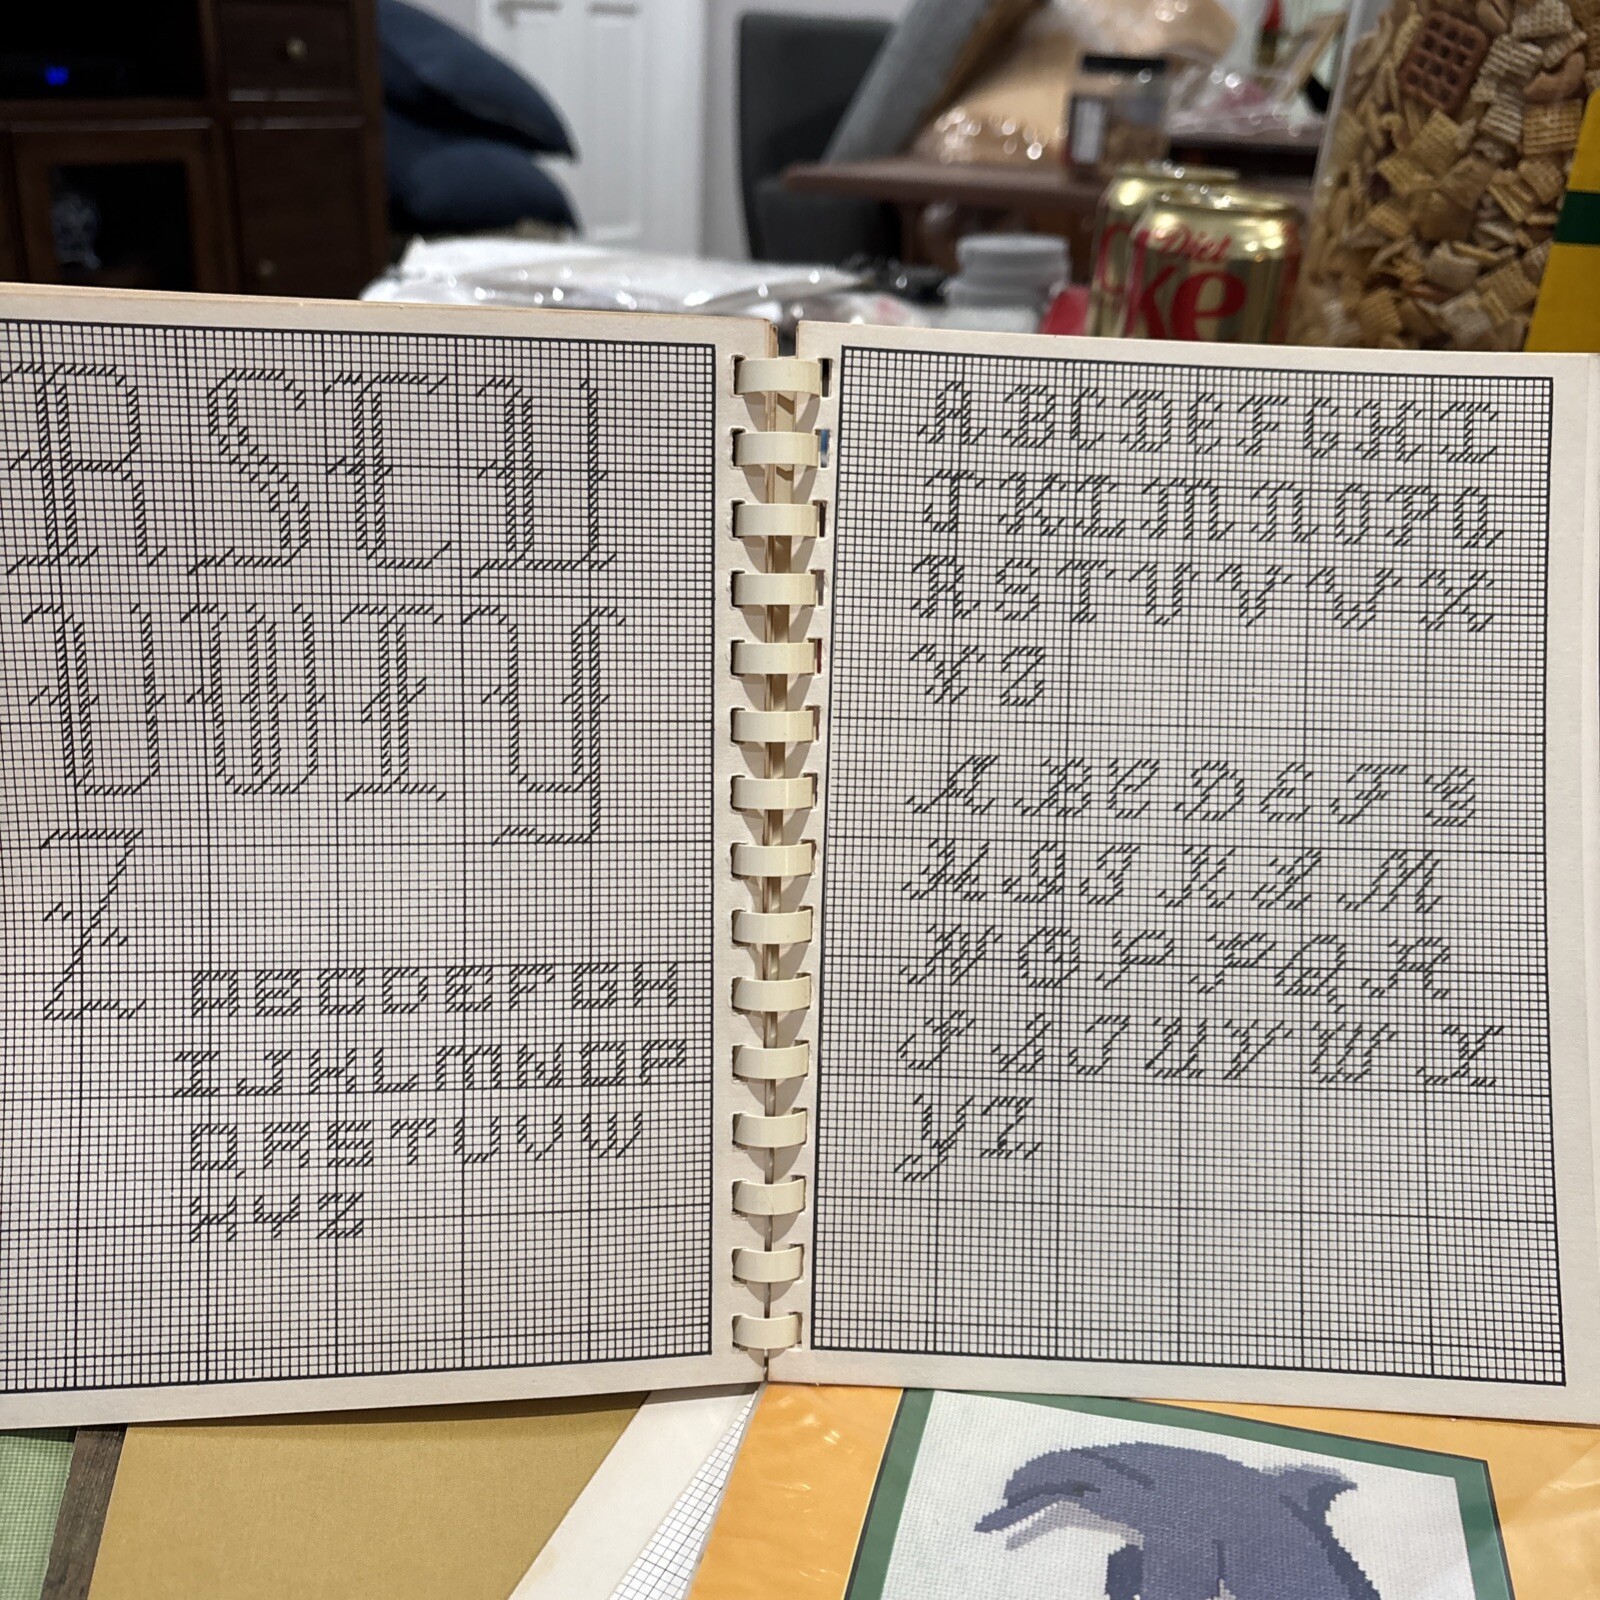 Diet
ke
R S T U
V W X Y
Z
A B C D E F G H
I J K L M N O P
Q R S T U V W
X Y Z
A B C D E F G H I
J K L M N O P Q
R S T U V W X
Y Z
A B C D E F G
H I J K L M
N O P P Q R
S S T U V W X
Y Z